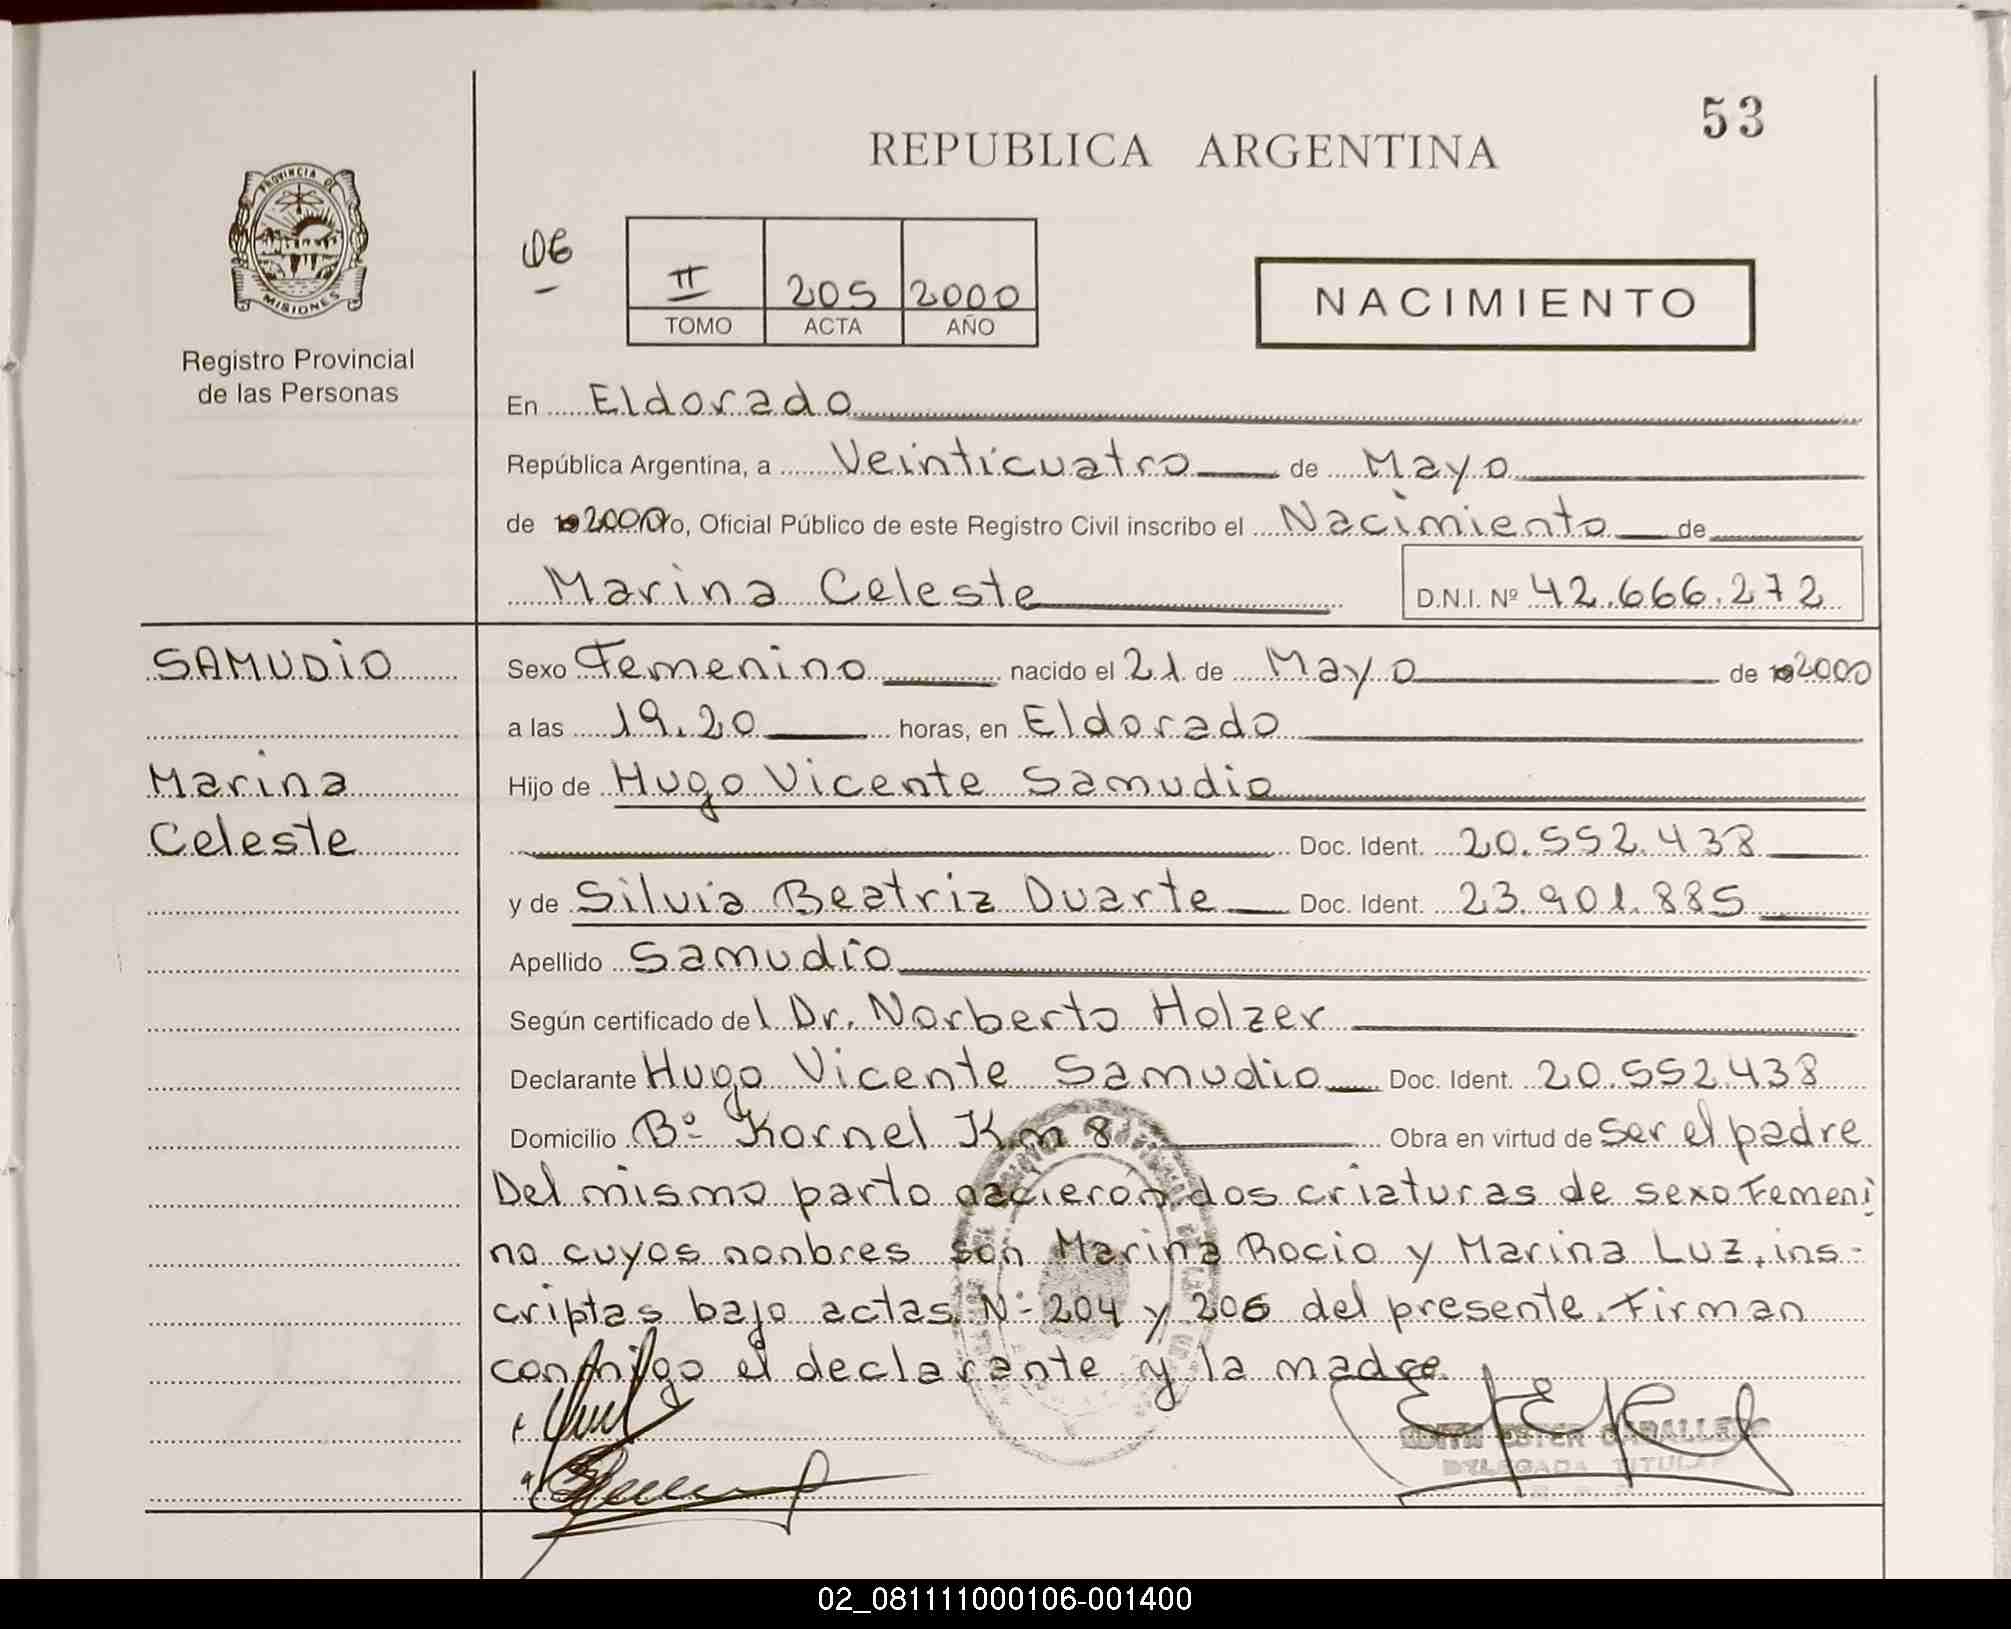 53
REPUBLICA ARGENTINA
PROVINCIA DE
MISIONES
Registro Provincial
de las Personas
II 205 2000
TOMO ACTA AÑO
NACIMIENTO
En Eldorado
República Argentina, a Veinticuatro de Mayo
de 2000 Yo, Oficial Público de este Registro Civil inscribo el Nacimiento de
Marina Celeste D.N.I. Nº 42.666.272
SAMUDIO
Marina
Celeste
Sexo Femenino nacido el 21 de Mayo de 2000
a las 19.20 horas, en Eldorado
Hijo de Hugo Vicente Samudio
Doc. Ident. 20.552.438
y de Silvia Beatriz Duarte Doc. Ident. 23.901.885
Apellido Samudio
Según certificado del Dr. Norberto Holzer
Declarante Hugo Vicente Samudio Doc. Ident. 20.552.438
Domicilio Bº Kornel Km 8 Obra en virtud de ser el padre
Del mismo parto nacieron dos criaturas de sexo Femeni
no cuyos nonbres son Marina Rocio y Marina Luz, ins-
criptas bajo actas Nº 204 y 206 del presente. Firman
conmigo el declarante y la madre
EDITH ESTER CABALLERO
DELEGADA TITULAR
02_081111000106-001400